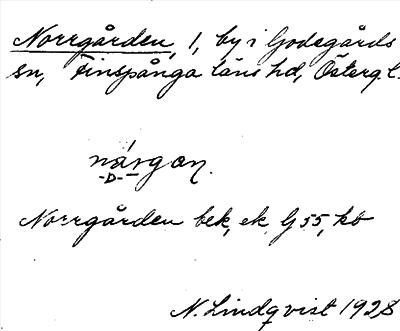 Norrgården, 1, by i Godegårds
sn, Finspånga läns hd, Österg. l.
nárgan.
-D-
Norrgården bek, ek, G 55, kb
N. Lindqvist 1928